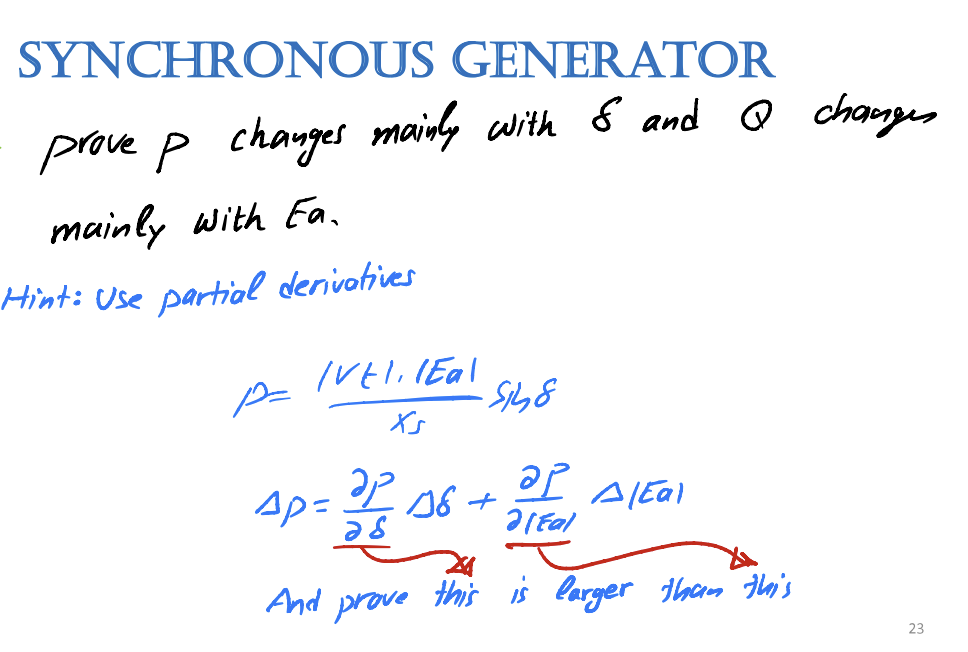 SYNCHRONOUS GENERATOR
prove p changes mainly with δ and Q changes
mainly with Ea.
Hint: Use partial derivatives
P = |Vt|.|Ea| / Xs sin δ
Δp = ∂P/∂δ Δδ + ∂P/∂|Ea| Δ|Ea|
And prove this is larger than this
23